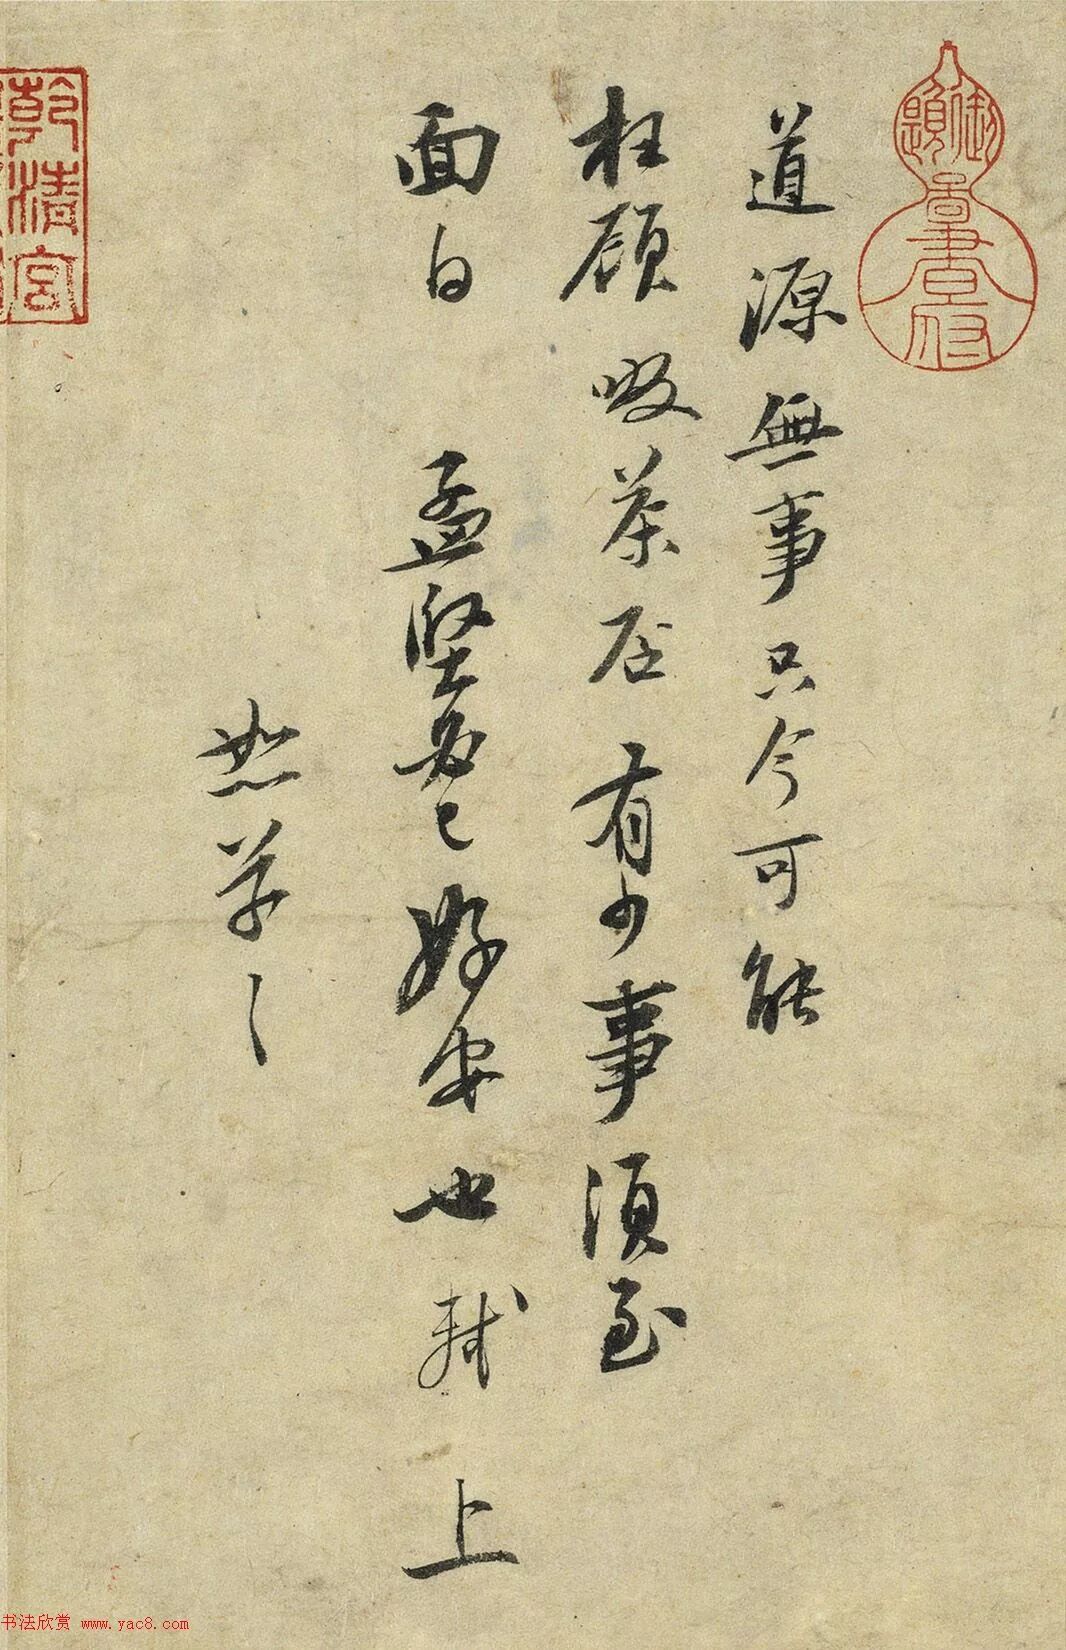 御題啚書府
道源無事只今可能
枉顧啜茶否有少事須至
面白孟堅必已好安也軾上
恕草〻
乾清宮
书法欣赏 www.yac8.com